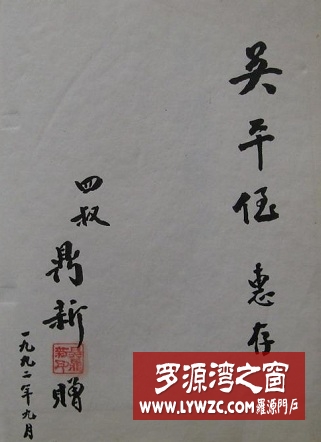 吴平侄 惠存
四叔
鼎新 赠
一九九二年九月
罗源湾之窗
WWW.LYWZC.COM 羅源門戶